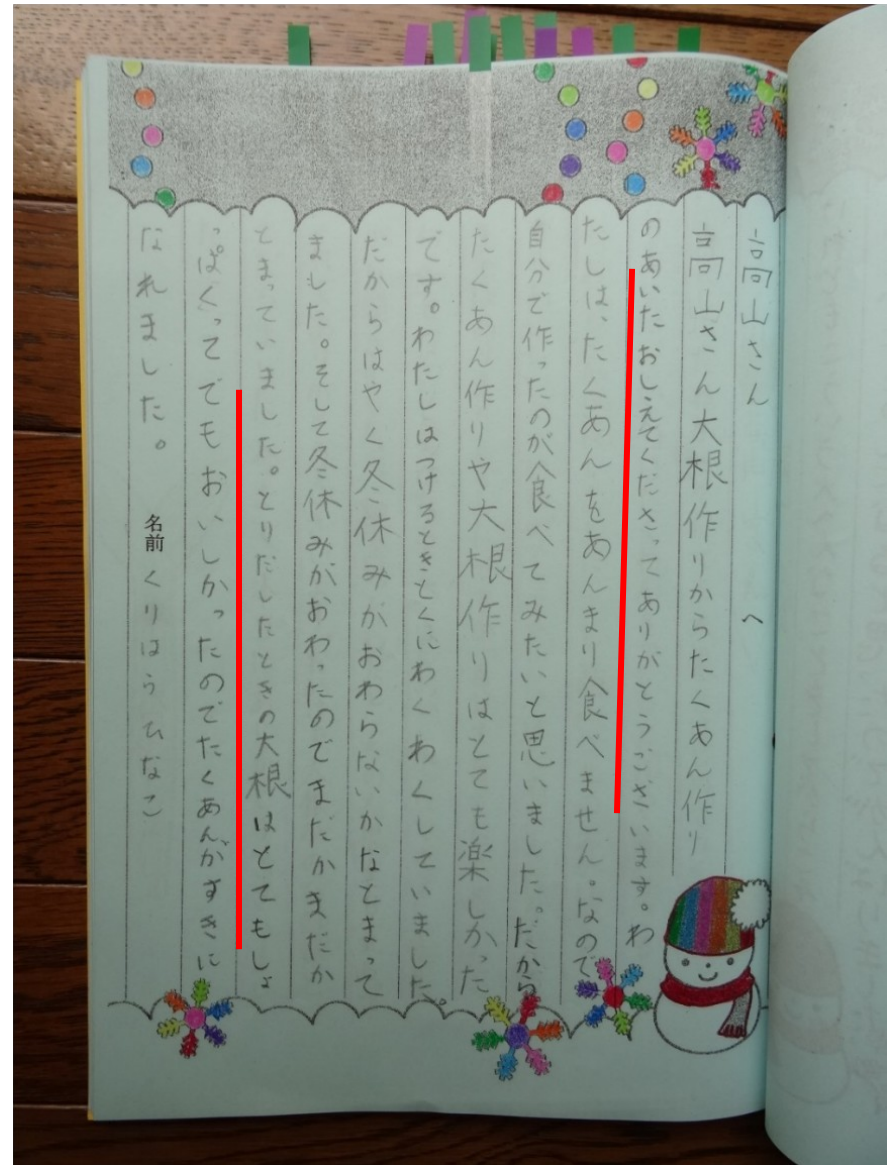 高山さん へ
高山さん大根作りからたくあん作り
のあいたおしえてくださってありがとうございます。わ
たしは、たくあんをあんまり食べません。なので
自分で作ったのが食べてみたいと思いました。だから
たくあん作りや大根作りはとても楽しかった
です。わたしはつけるときとくにわくわくしていました。
だからはやく冬休みがおわらないかなとまって
ました。そして冬休みがおわったのでまだかまだか
とまっていました。とりだしたときの大根はとてもしょ
っぱくってでもおいしかったのでたくあんがすきに
なれました。
名前 くりはらひなこ